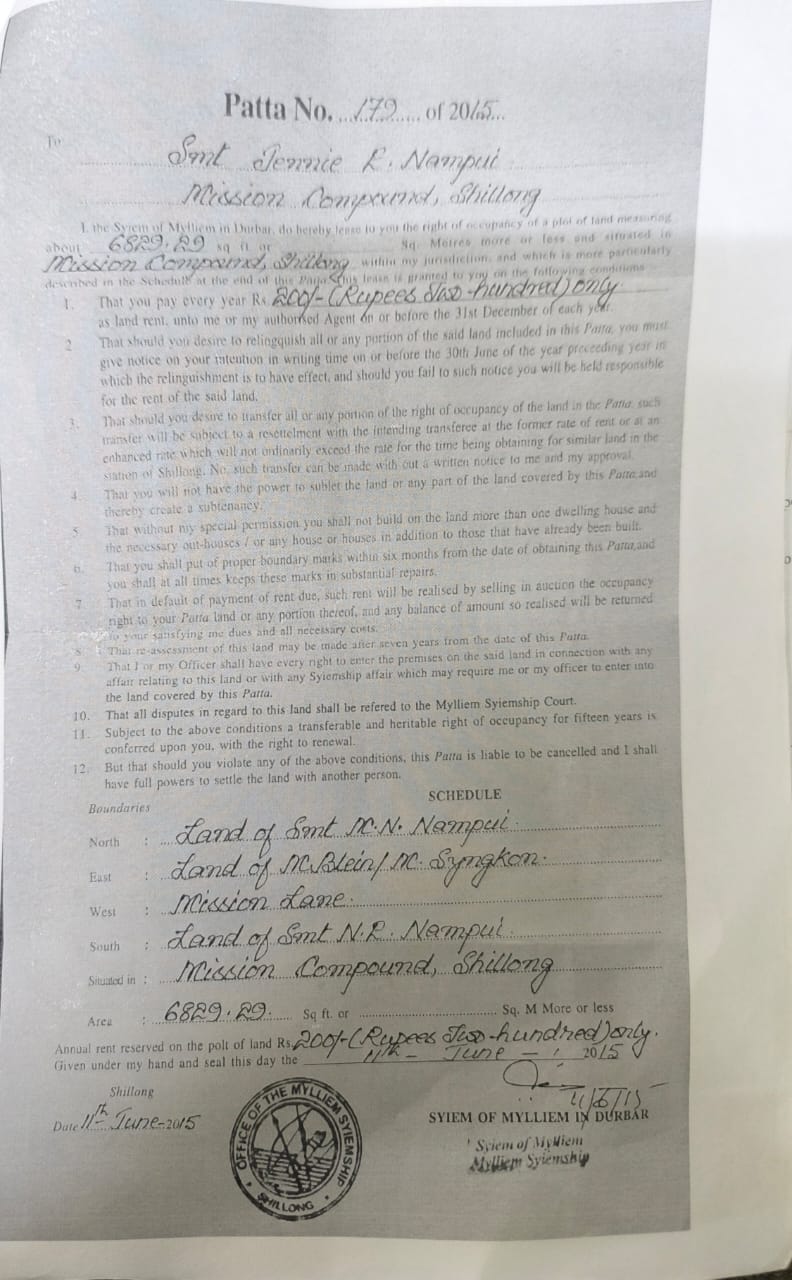 Patta No. 179 of 2015
To
Smt Jennie R. Nampui
Mission Compound, Shillong
I, the Syiem of Mylliem in Durbar, do hereby lease to you the right of occupancy of a plot of land measuring
about 6829.29 sq ft or Sq. Metres more or less and situated in
Mission Compound, Shillong within my jurisdiction, and which is more particularly
described in the Schedule at the end of this Patta. This lease is granted to you on the following conditions
1. That you pay every year Rs. 200/- (Rupees Two-hundred) only
as land rent, unto me or my authorised Agent on or before the 31st December of each year.
2 That should you desire to relingquish all or any portion of the said land included in this Patta, you must
give notice on your intention in writing time on or before the 30th June of the year preceeding year in
which the relinguishment is to have effect, and should you fail to such notice you will be held responsible
for the rent of the said land.
3. That should you desire to transfer all or any portion of the right of occupancy of the land in the Patta, such
transfer will be subject to a resettelment with the intending transferee at the former rate of rent or at an
enhanced rate which will not ordinarily exceed the rate for the time being obtaining for similar land in the
station of Shillong. No, such transfer can be made with out a written notice to me and my approval.
4. That you will not have the power to sublet the land or any part of the land covered by this Patta and
thereby create a subtenancy.
5. That without my special permission you shall not build on the land more than one dwelling house and
the necessary out-houses / or any house or houses in addition to those that have already been built.
6. That you shall put of proper boundary marks within six months from the date of obtaining this Patta, and
you shall at all times keeps these marks in substantial repairs.
7. That in default of payment of rent due, such rent will be realised by selling in auction the occupancy
right to your Patta land or any portion thereof, and any balance of amount so realised will be returned
to your satisfying me dues and all necessary costs.
8. That re-assessment of this land may be made after seven years from the date of this Patta.
9. That I or my Officer shall have every right to enter the premises on the said land in connection with any
affair relating to this land or with any Syiemship affair which may require me or my officer to enter into
the land covered by this Patta.
10. That all disputes in regard to this land shall be refered to the Mylliem Syiemship Court.
11. Subject to the above conditions a transferable and heritable right of occupancy for fifteen years is
conferred upon you, with the right to renewal.
12. But that should you violate any of the above conditions, this Patta is liable to be cancelled and I shall
have full powers to settle the land with another person.
SCHEDULE
Boundaries
North : Land of Smt M.N. Nampui
East : Land of M. Blein/ M. Syngkon.
West : Mission Lane.
South : Land of Smt N.R. Nampui
Situated in : Mission Compound, Shillong
Area : 6829.29. Sq ft. or Sq. M More or less
Annual rent reserved on the polt of land Rs. 200/- (Rupees Two-hundred) only.
Given under my hand and seal this day the 11th - June - 2015
11/6/15
Shillong
Date 11th June-2015
SYIEM OF MYLLIEM IN DURBAR
Syiem of Mylliem
Mylliem Syiemship
OFFICE OF THE MYLLIEM SYIEMSHIP
SHILLONG